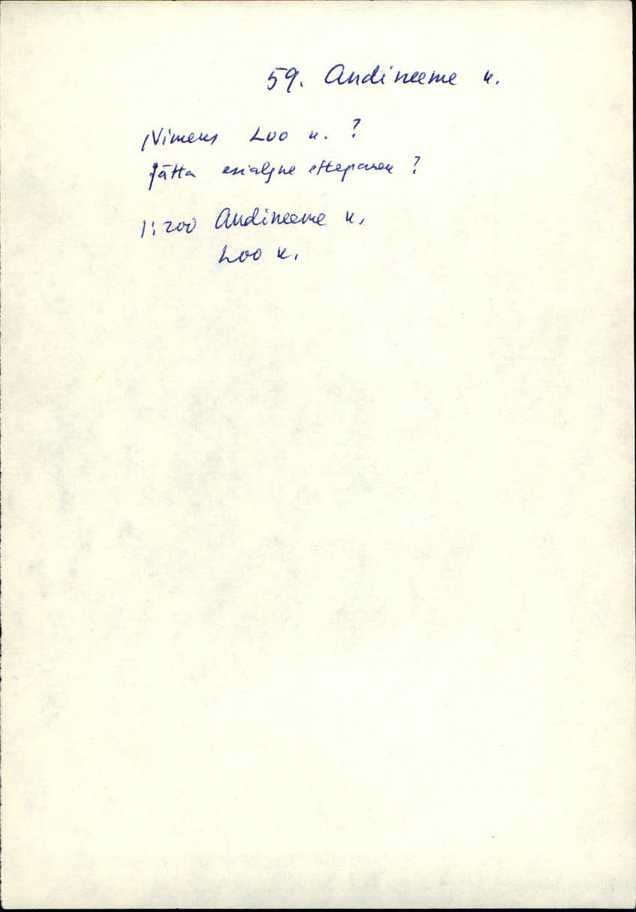 59. Andineeme k.
Nimeks Loo k. ?
Jätta esialgne ettepanek ?
1:200 Andineeme k.
Loo k.